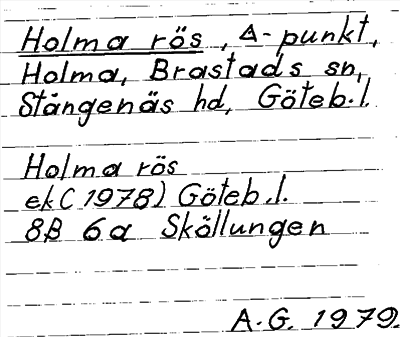 Holma rös, Δ-punkt,
Holma, Brastads sn,
Stångenäs hd, Göteb.l.
Holma rös
ek (1978) Göteb.l.
8B 6a Skällungen
A.G. 1979.